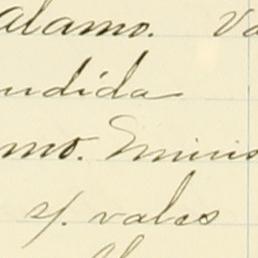 alamo. Va
ndida
mo. Eminis
s/. vales